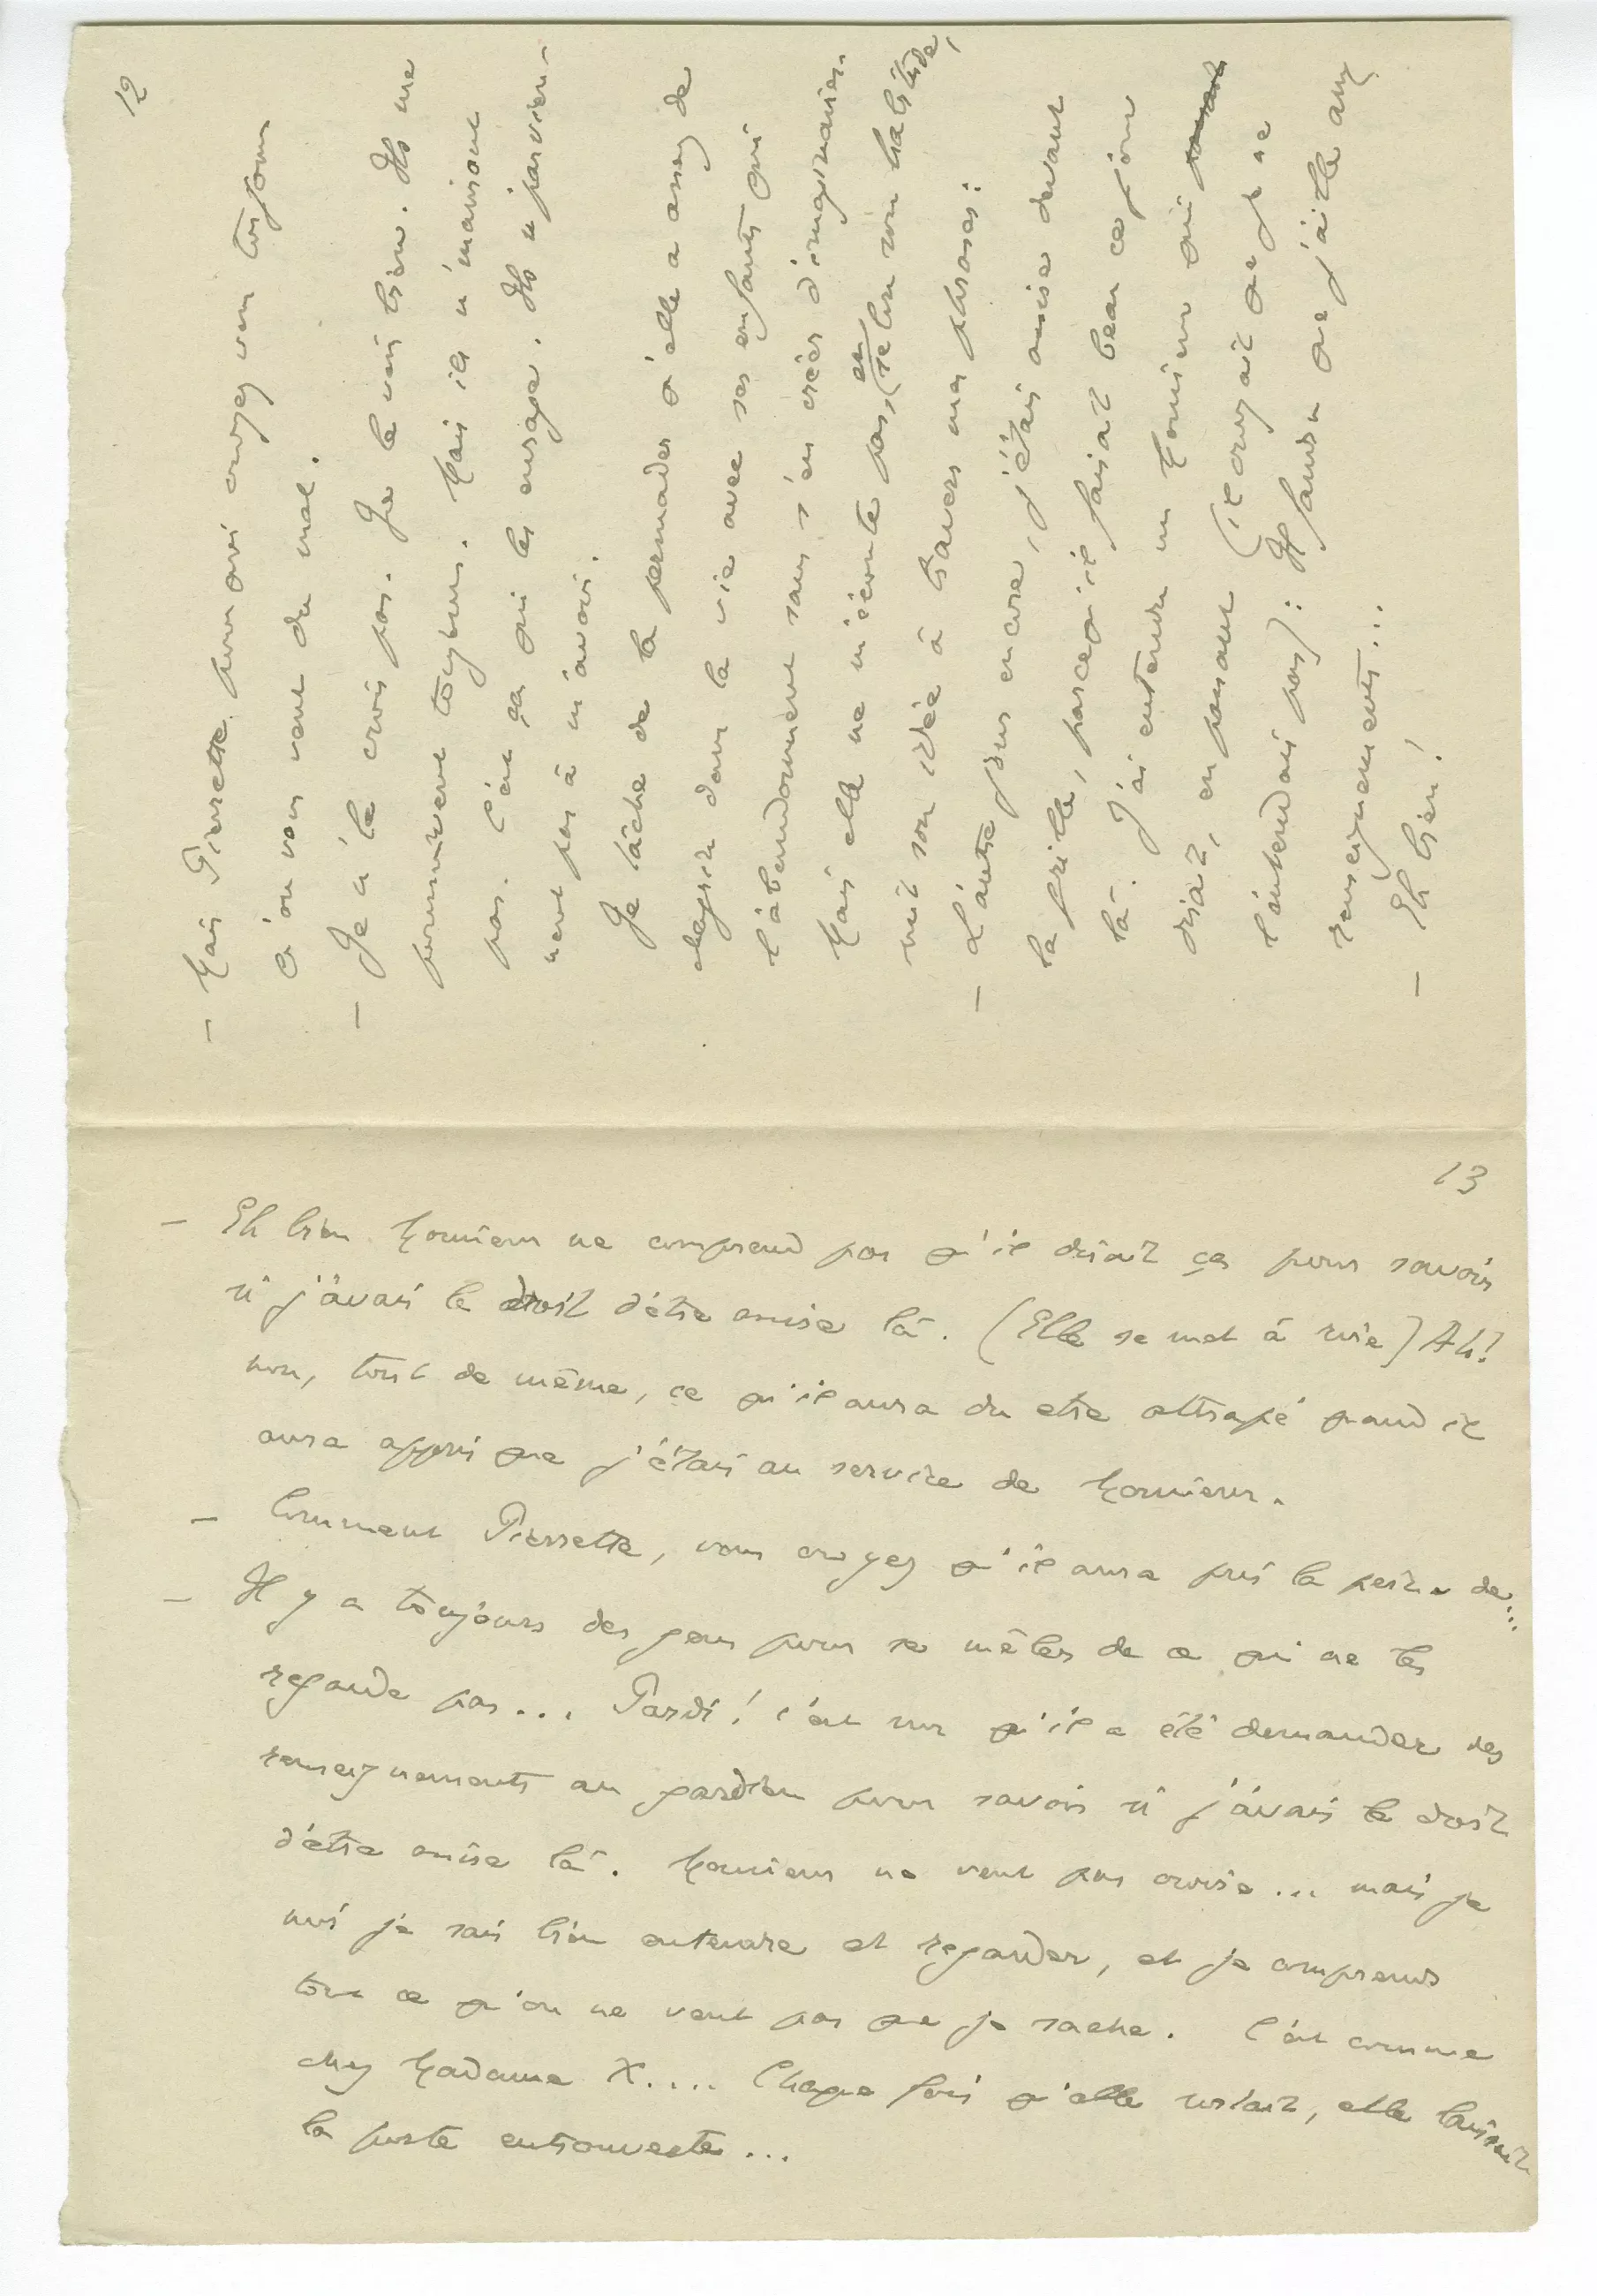 12
— Mais Pierrette pourquoi croyez vous toujours
qu'on vous veut du mal.
— Je n'le crois pas. Je le vois bien. Ils me
poursuivent toujours. Mais ils n'm'auront
pas. C'est ça qui les enrage. Ils n'parvien-
nent pas à m'avoir.
Je tâche de la persuader qu'elle a assez de
chagrin dans la vie avec ses enfants qui
l'abandonnent sans s'en créer d'imaginaires.
Mais elle ne m'écoute pas, et selon son habitude,
suit son idée à travers mes phrases:
— L'autre jour encore, j'étais assise devant
la grille, parce qu'il faisait beau ce jour
là. J'ai entendu un Monsieur qui
disait, en passant (il croyait que je ne
l'entendais pas): Il faudra que j'aille aux
renseignements...
— Eh bien!
13
— Eh bien Monsieur ne comprend pas qu'il disait ça pour savoir
si j'avais le droit d'être assise là. (Elle se met à rire) Ah!
non, tout de même, ce qu'il aura du etre attrapé quand il
aura appris que j'étais au service de Monsieur.
— Comment Pierrette, vous croyez qu'il aura pris la peine de...
— Il y a toujours des gens pour se mêler de ce qui ne les
regarde pas... Pardi! c'est sur qu'il a été demander des
renseignements au gardien pour savoir si j'avais le droit
d'être assise là. Monsieur ne veut pas croire... mais je
moi je sais bien entendre et regarder, et je comprends
tout ce qu'on ne veut pas que je sache. C'est comme
chez Madame X.... Chaque fois qu'elle sortait, elle laissait
la porte entrouverte...